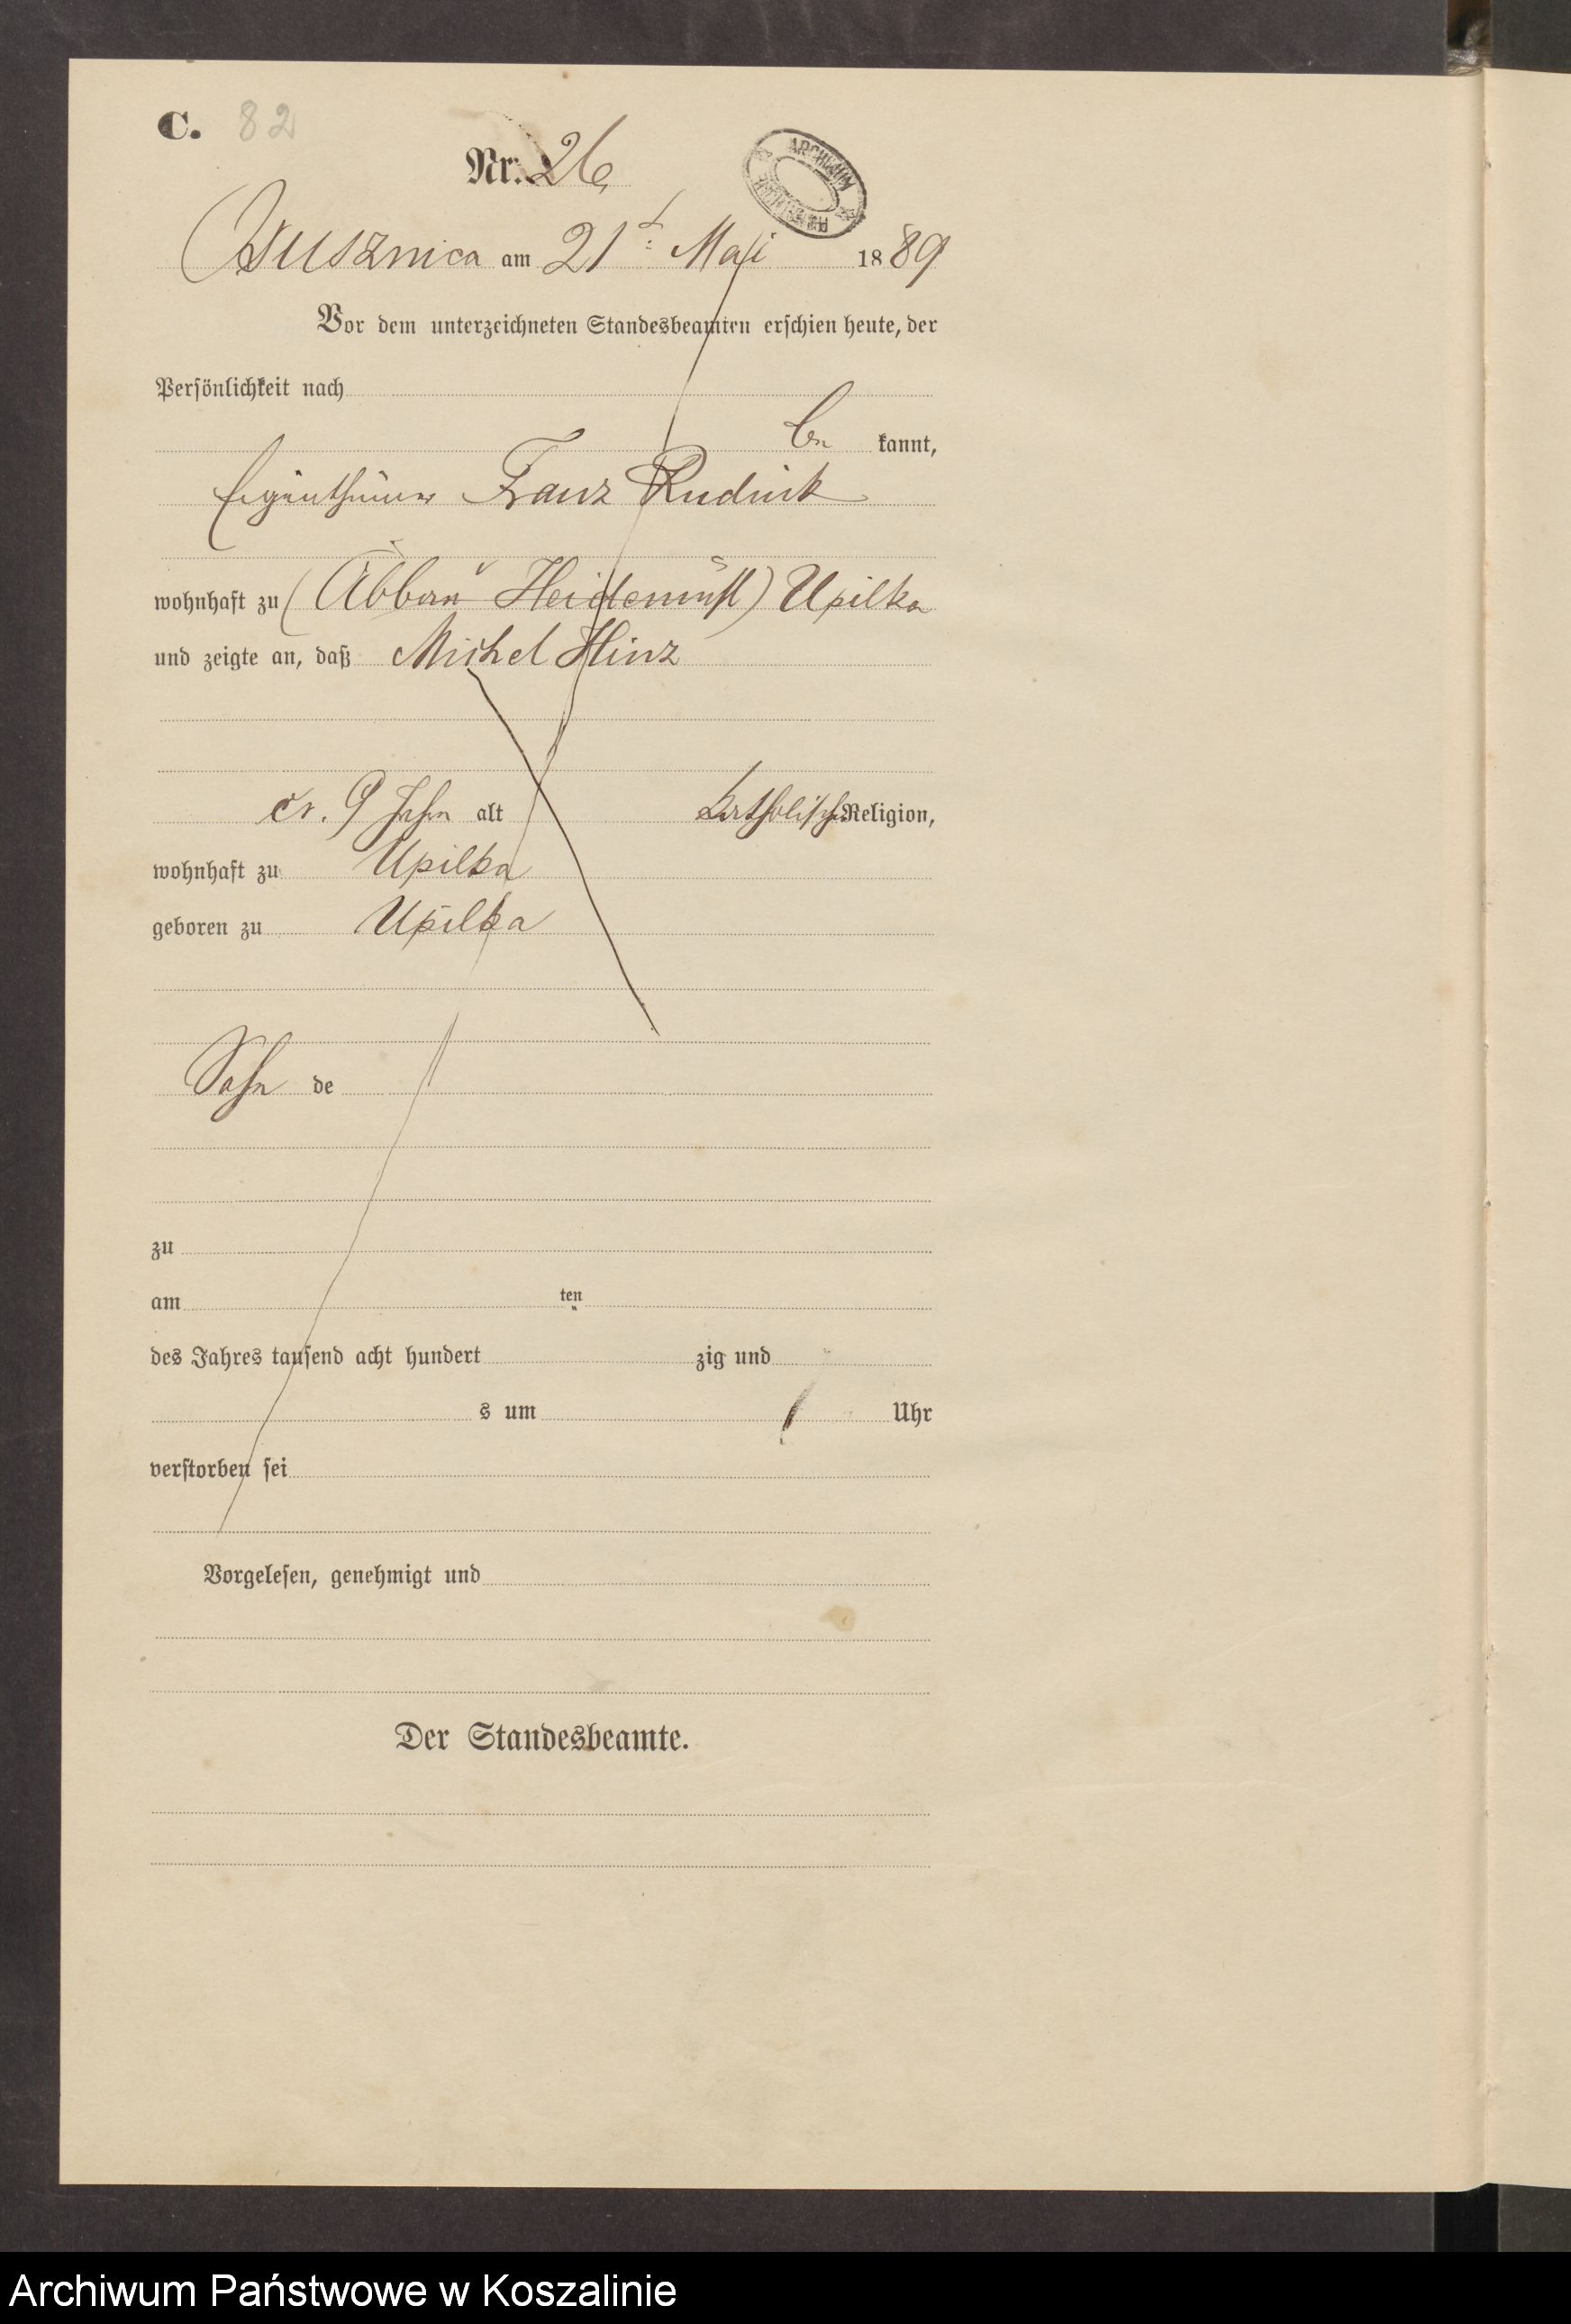 C. 82
Nr. 26
ARCHIWUM
Wusznica am 21t Mai 1889
Vor dem unterzeichneten Standesbeamten erschien heute, der
Persönlichkeit nach
be kannt,
Eigenthümer Franz Rudnik
wohnhaft zu ( Abbau Heidemühl) Upilka
und zeigte an, daß Michel Hinz
cr. 9 Jahre alt katholischer Religion,
wohnhaft zu Upilka
geboren zu Upilka
Sohn de
zu
am ten
des Jahres tausend acht hundert zig und
s um Uhr
verstorben sei
Vorgelesen, genehmigt und
Der Standesbeamte.
Archiwum Państwowe w Koszalinie